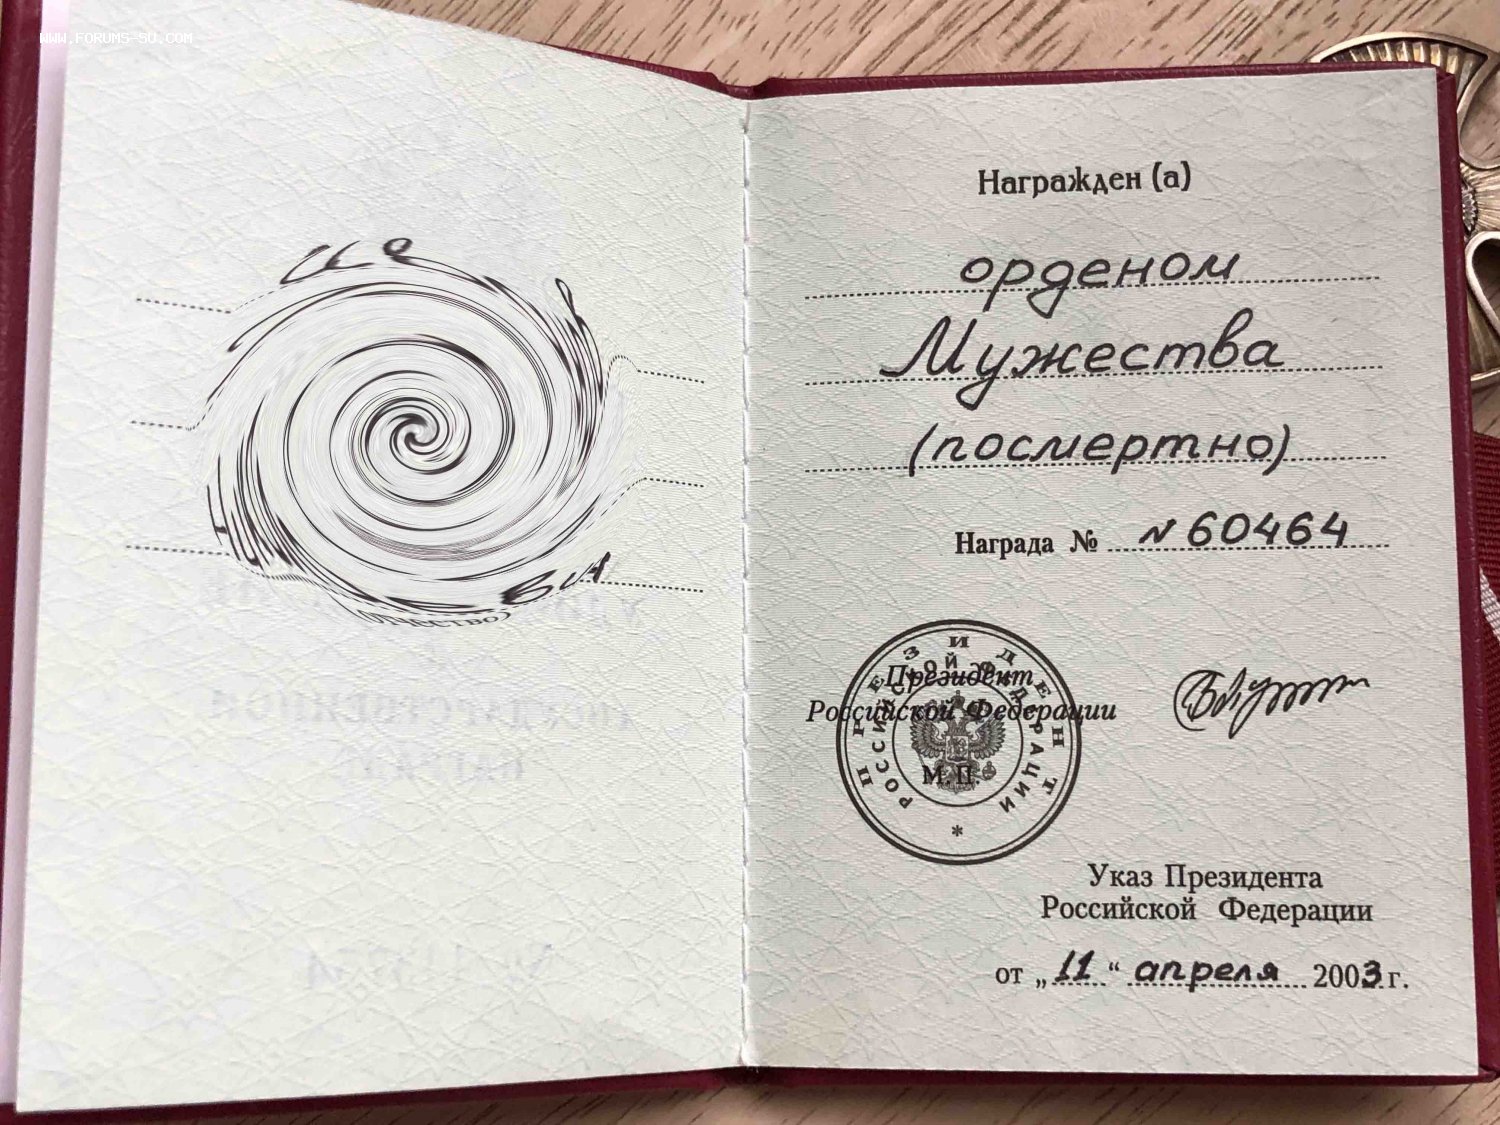 WWW.FORUMS-SU.COM
отчество)
Награжден (а)
орденом
Мужества
(посмертно)
Награда № N 60464
Президент
Российской Федерации
М.П.
ПРЕЗИДЕНТ
РОССИЙСКОЙ ФЕДЕРАЦИИ
*
Указ Президента
Российской Федерации
от „ 11 “ апреля 2003 г.